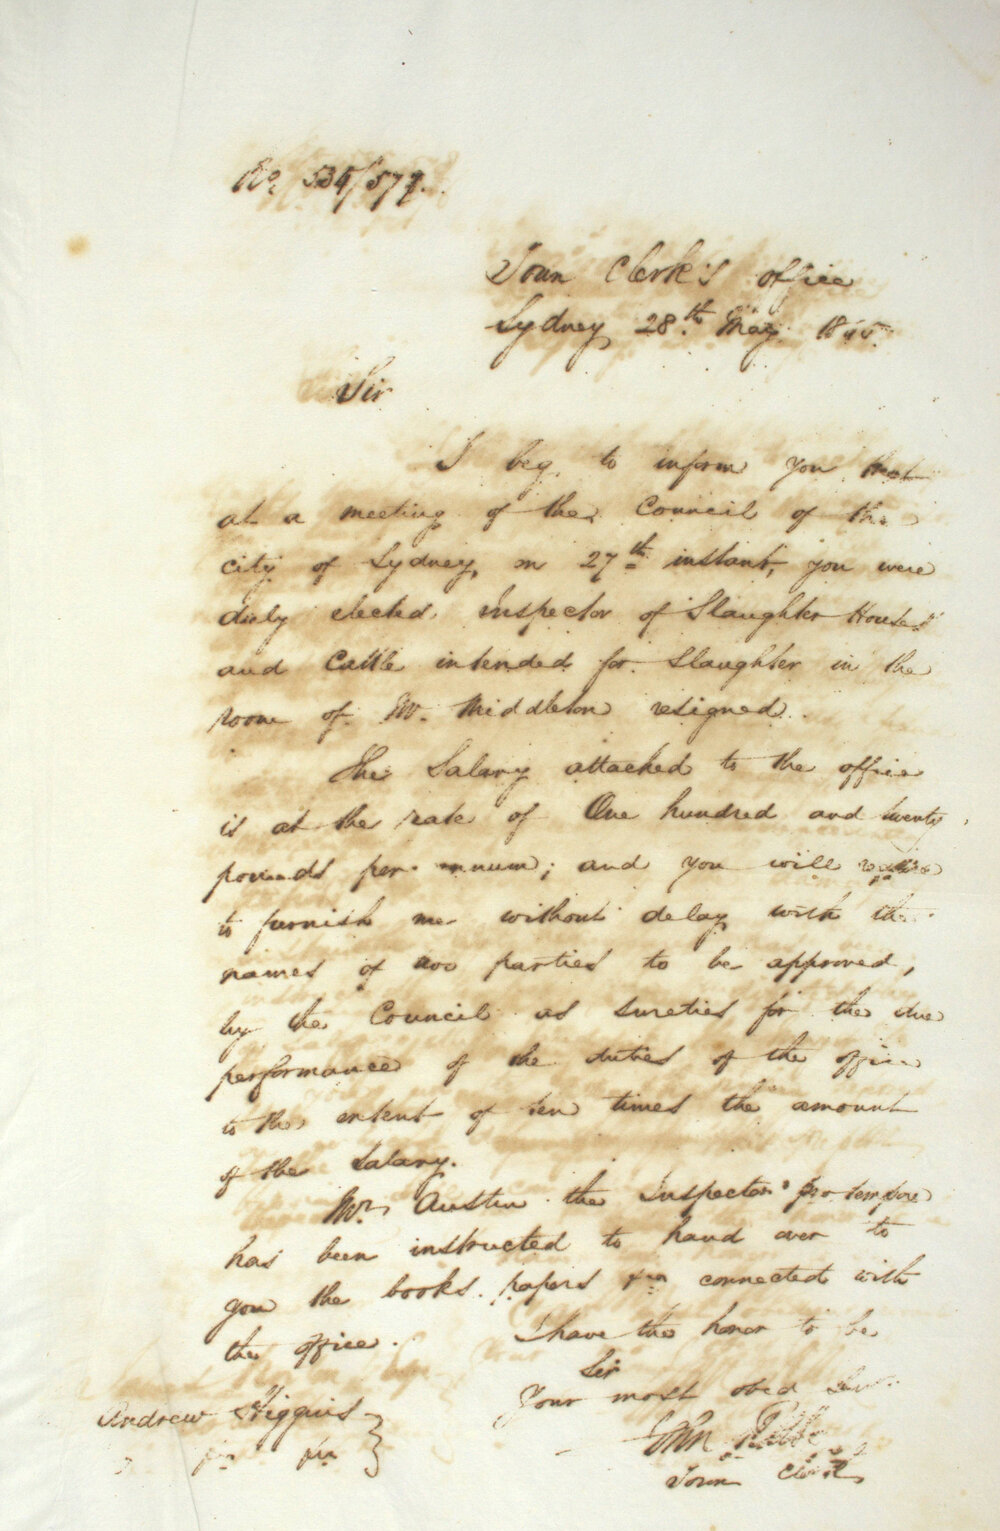 No. 534/579.
Town Clerk's office
Sydney 28th May 1845.
Sir
I beg to inform you that
at a meeting of the Council of the
city of Sydney, on 27th instant, you were
duly elected Inspector of Slaughter Houses
and Cattle intended for Slaughter in the
room of Mr. Middleton resigned.
The Salary attached to the office
is at the rate of One hundred and twenty
pounds per annum; and you will require
to furnish me without delay with the
names of two parties to be approved,
by the Council as sureties for the due
performance of the duties of the office
to the extent of ten times the amount
of the Salary.
Mr. Austin the Inspector pro tempore
has been instructed to hand over to
you the books papers &ca connected with
the office.
I have the honor to be
Sir
Your most obed Serv
John Rae
Town Clerk
Andrew Higgins
&c &c